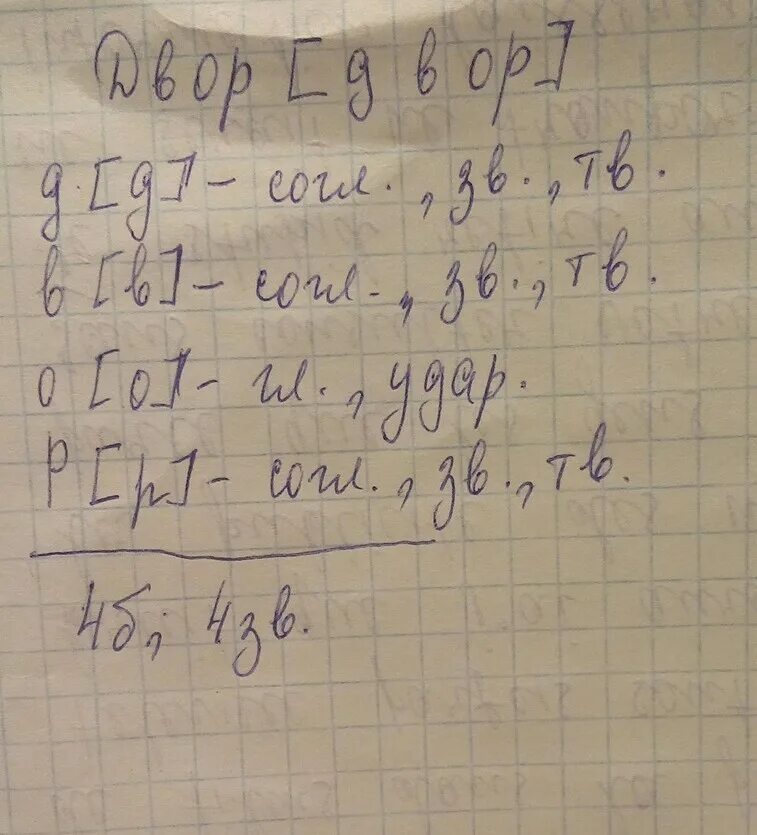 Двор [д в ор]
д [д] - согл., зв., тв.
в [в] - согл., зв., тв.
о [о] - гл., удар.
Р [р] - согл., зв., тв.
4б, 4зв.